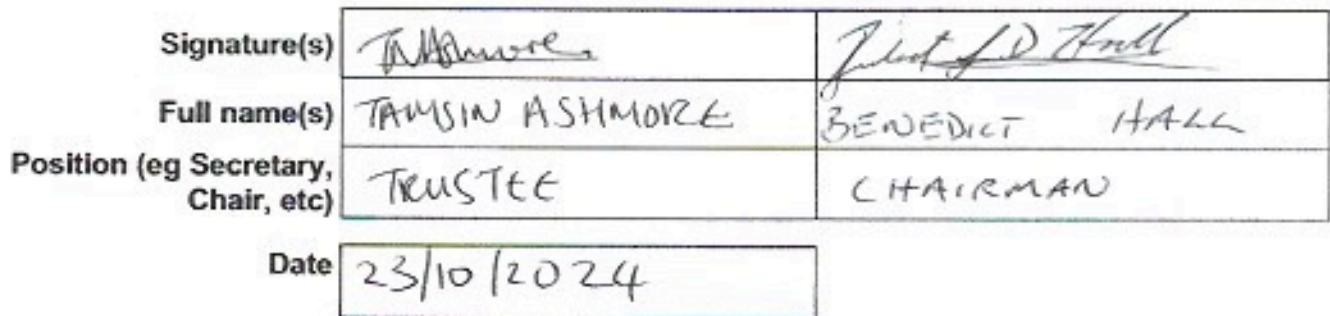 Signature(s) TNAshmore. Hall
Full name(s) TAMSIN ASHMORE BENEDICT HALL
Position (eg Secretary, Chair, etc) TRUSTEE CHAIRMAN
Date 23/10/2024